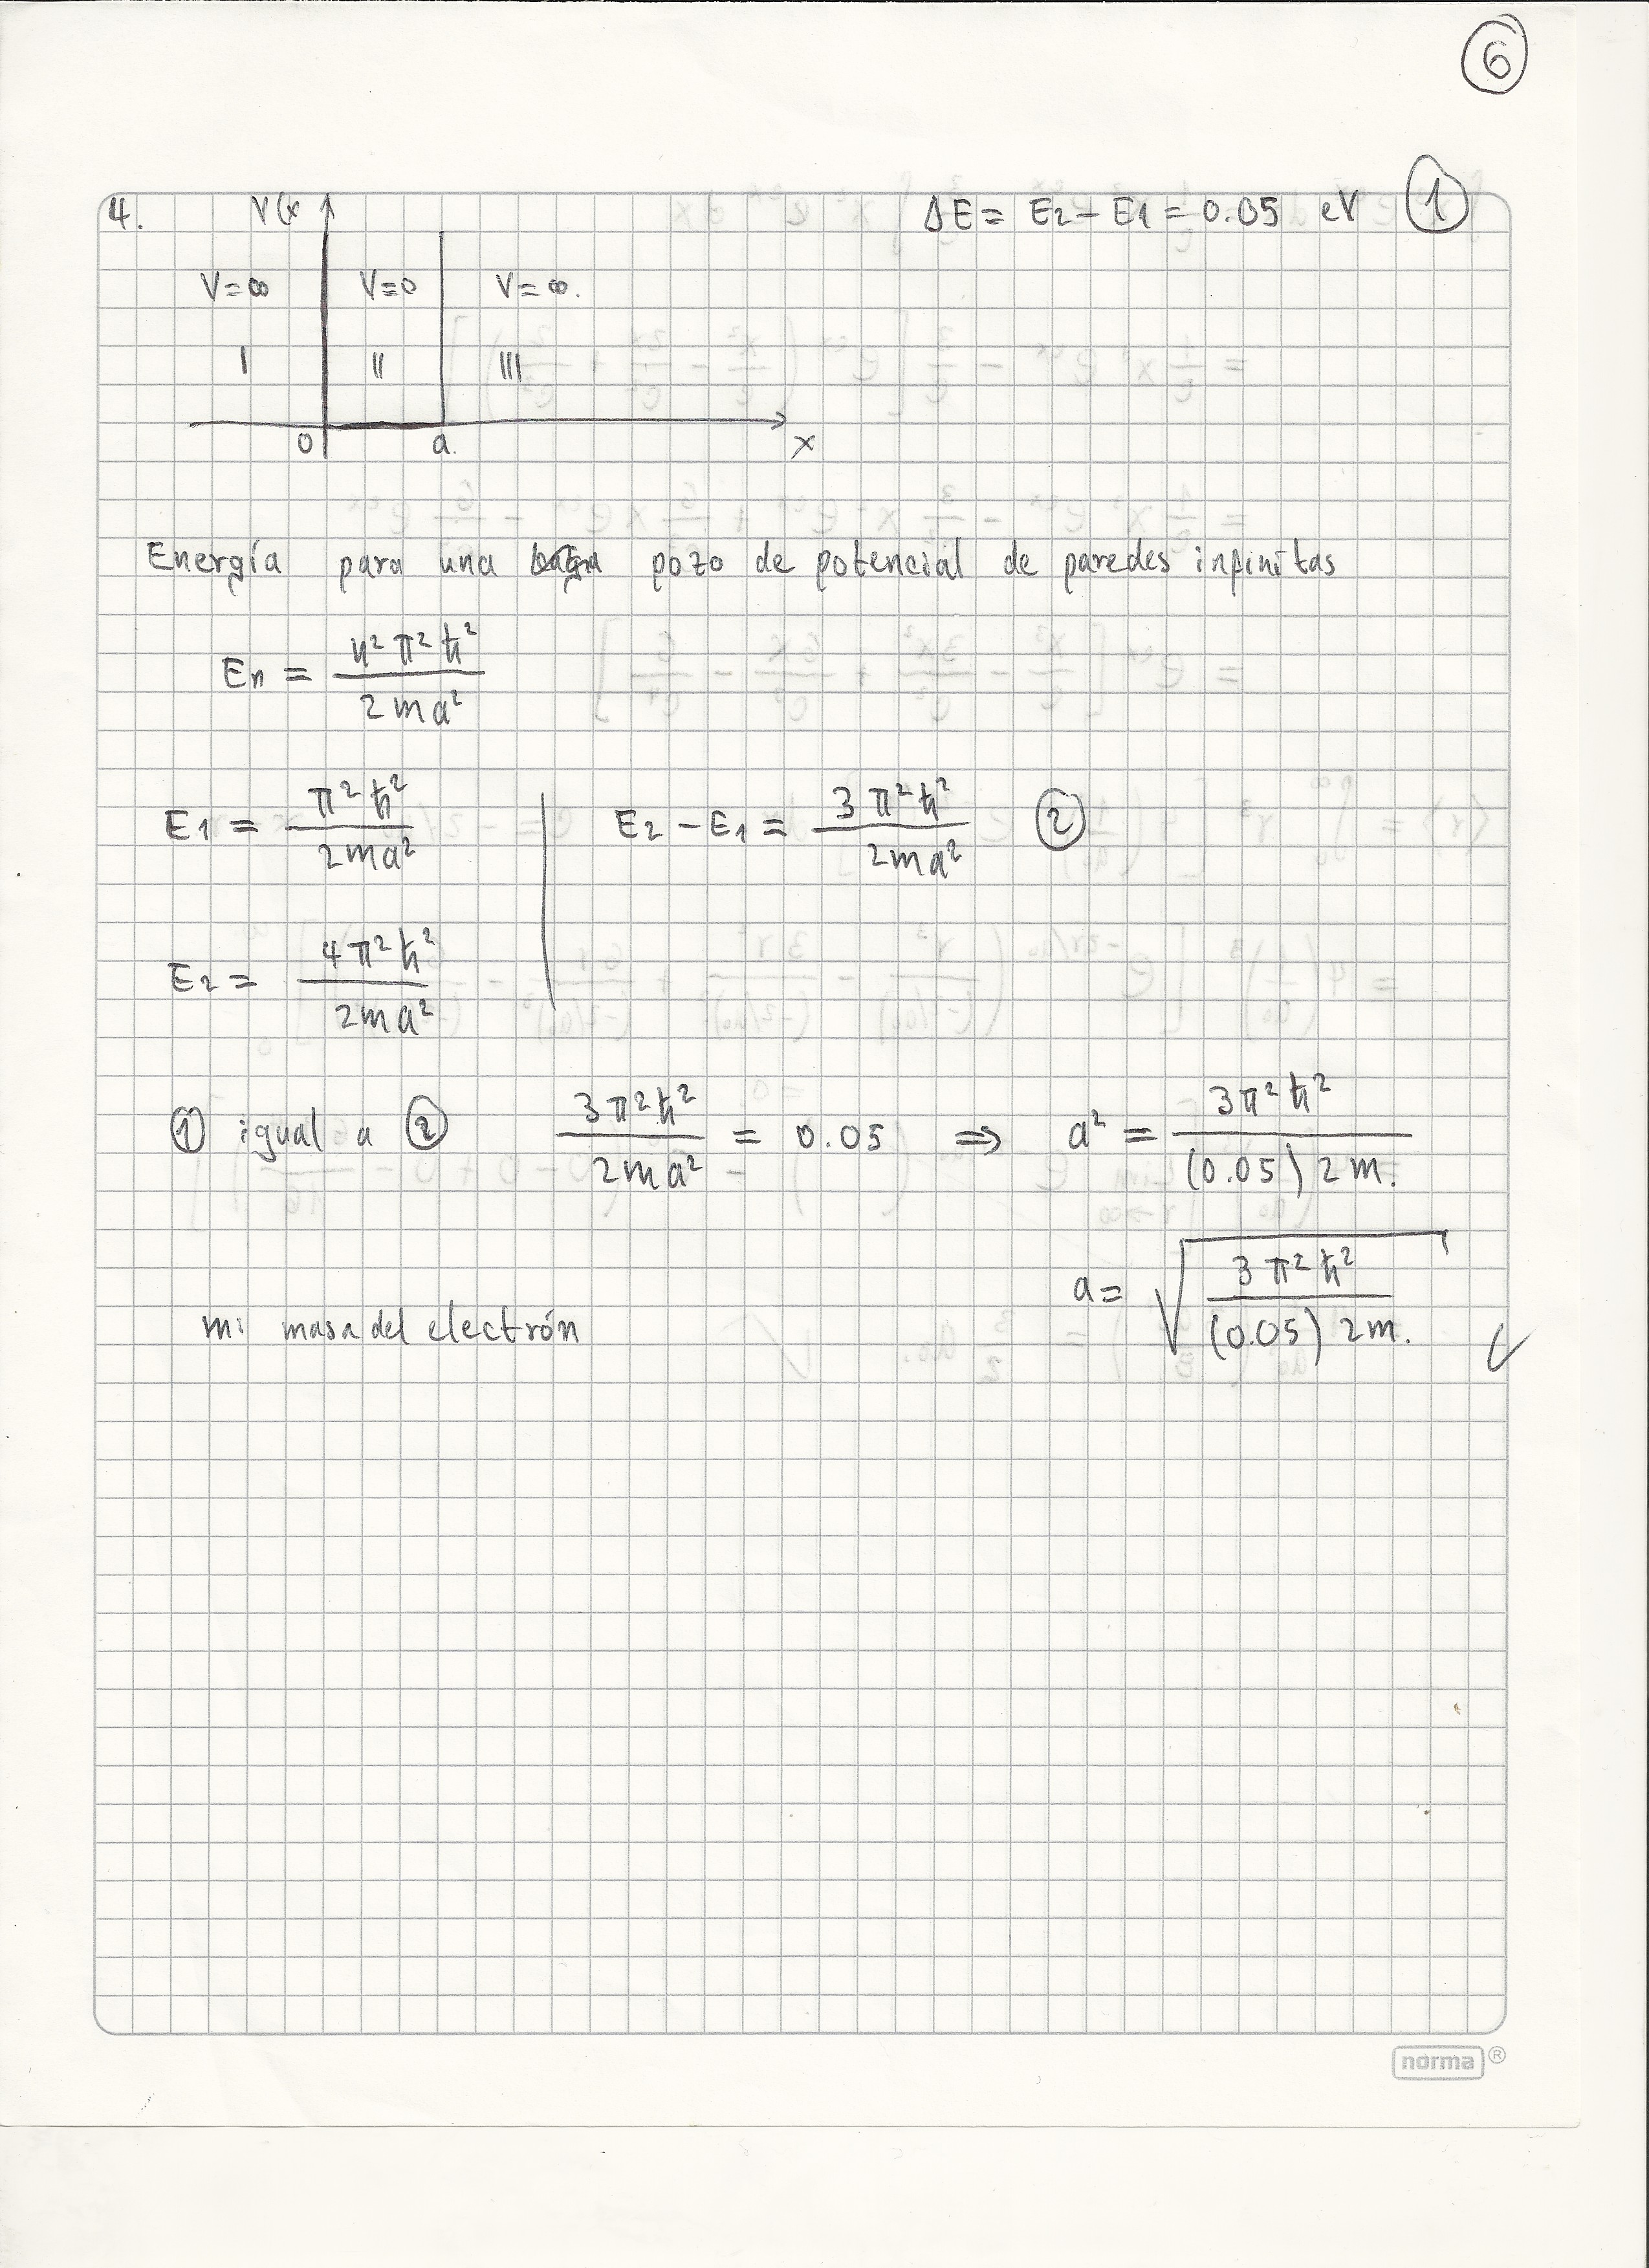 6
4. V(x ΔE = E2 − E1 = 0.05 eV 1
V=∞ V=0 V=∞.
I II III
0 a. x
Energía para una pozo de potencial de paredes infinitas
En = n² π² ħ² / 2 m a²
E1 = π² ħ² / 2 m a² E2 − E1 = 3 π² ħ² / 2 m a² 2
E2 = 4 π² ħ² / 2 m a²
1 igual a 2 3 π² ħ² / 2 m a² = 0.05 ⇒ a² = 3 π² ħ² / (0.05) 2 m.
a = √(3 π² ħ² / (0.05) 2 m.)
m: masa del electrón
norma®